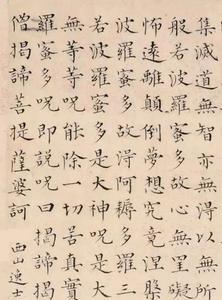 集滅道無智亦無得以無所
般若波羅蜜多故心無罣礙
怖遠離顛倒夢想究竟涅槃
波羅蜜多故得阿耨多羅三
若波羅蜜多是大神呪是大
無等等呪能除一切苦真實
羅蜜多呪即說呪曰揭諦揭
僧揭諦菩提薩婆訶 西山逸士